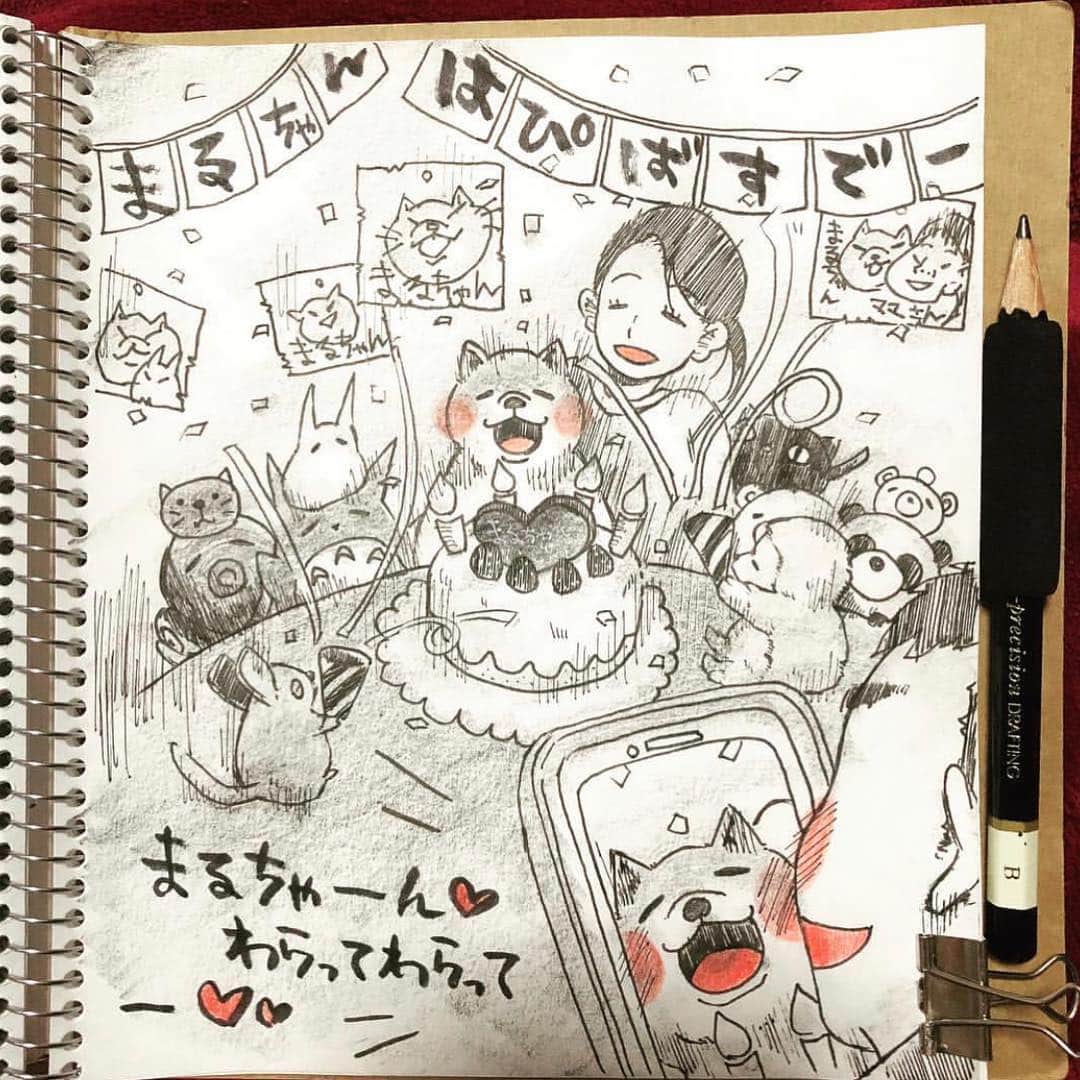 まるちゃん はぴばすでー
まるちゃん
まるちゃん
まるちゃん
ママさん
まるちゃーん♥
わらってわらって
ー♥♥
precision DRAFTING
B